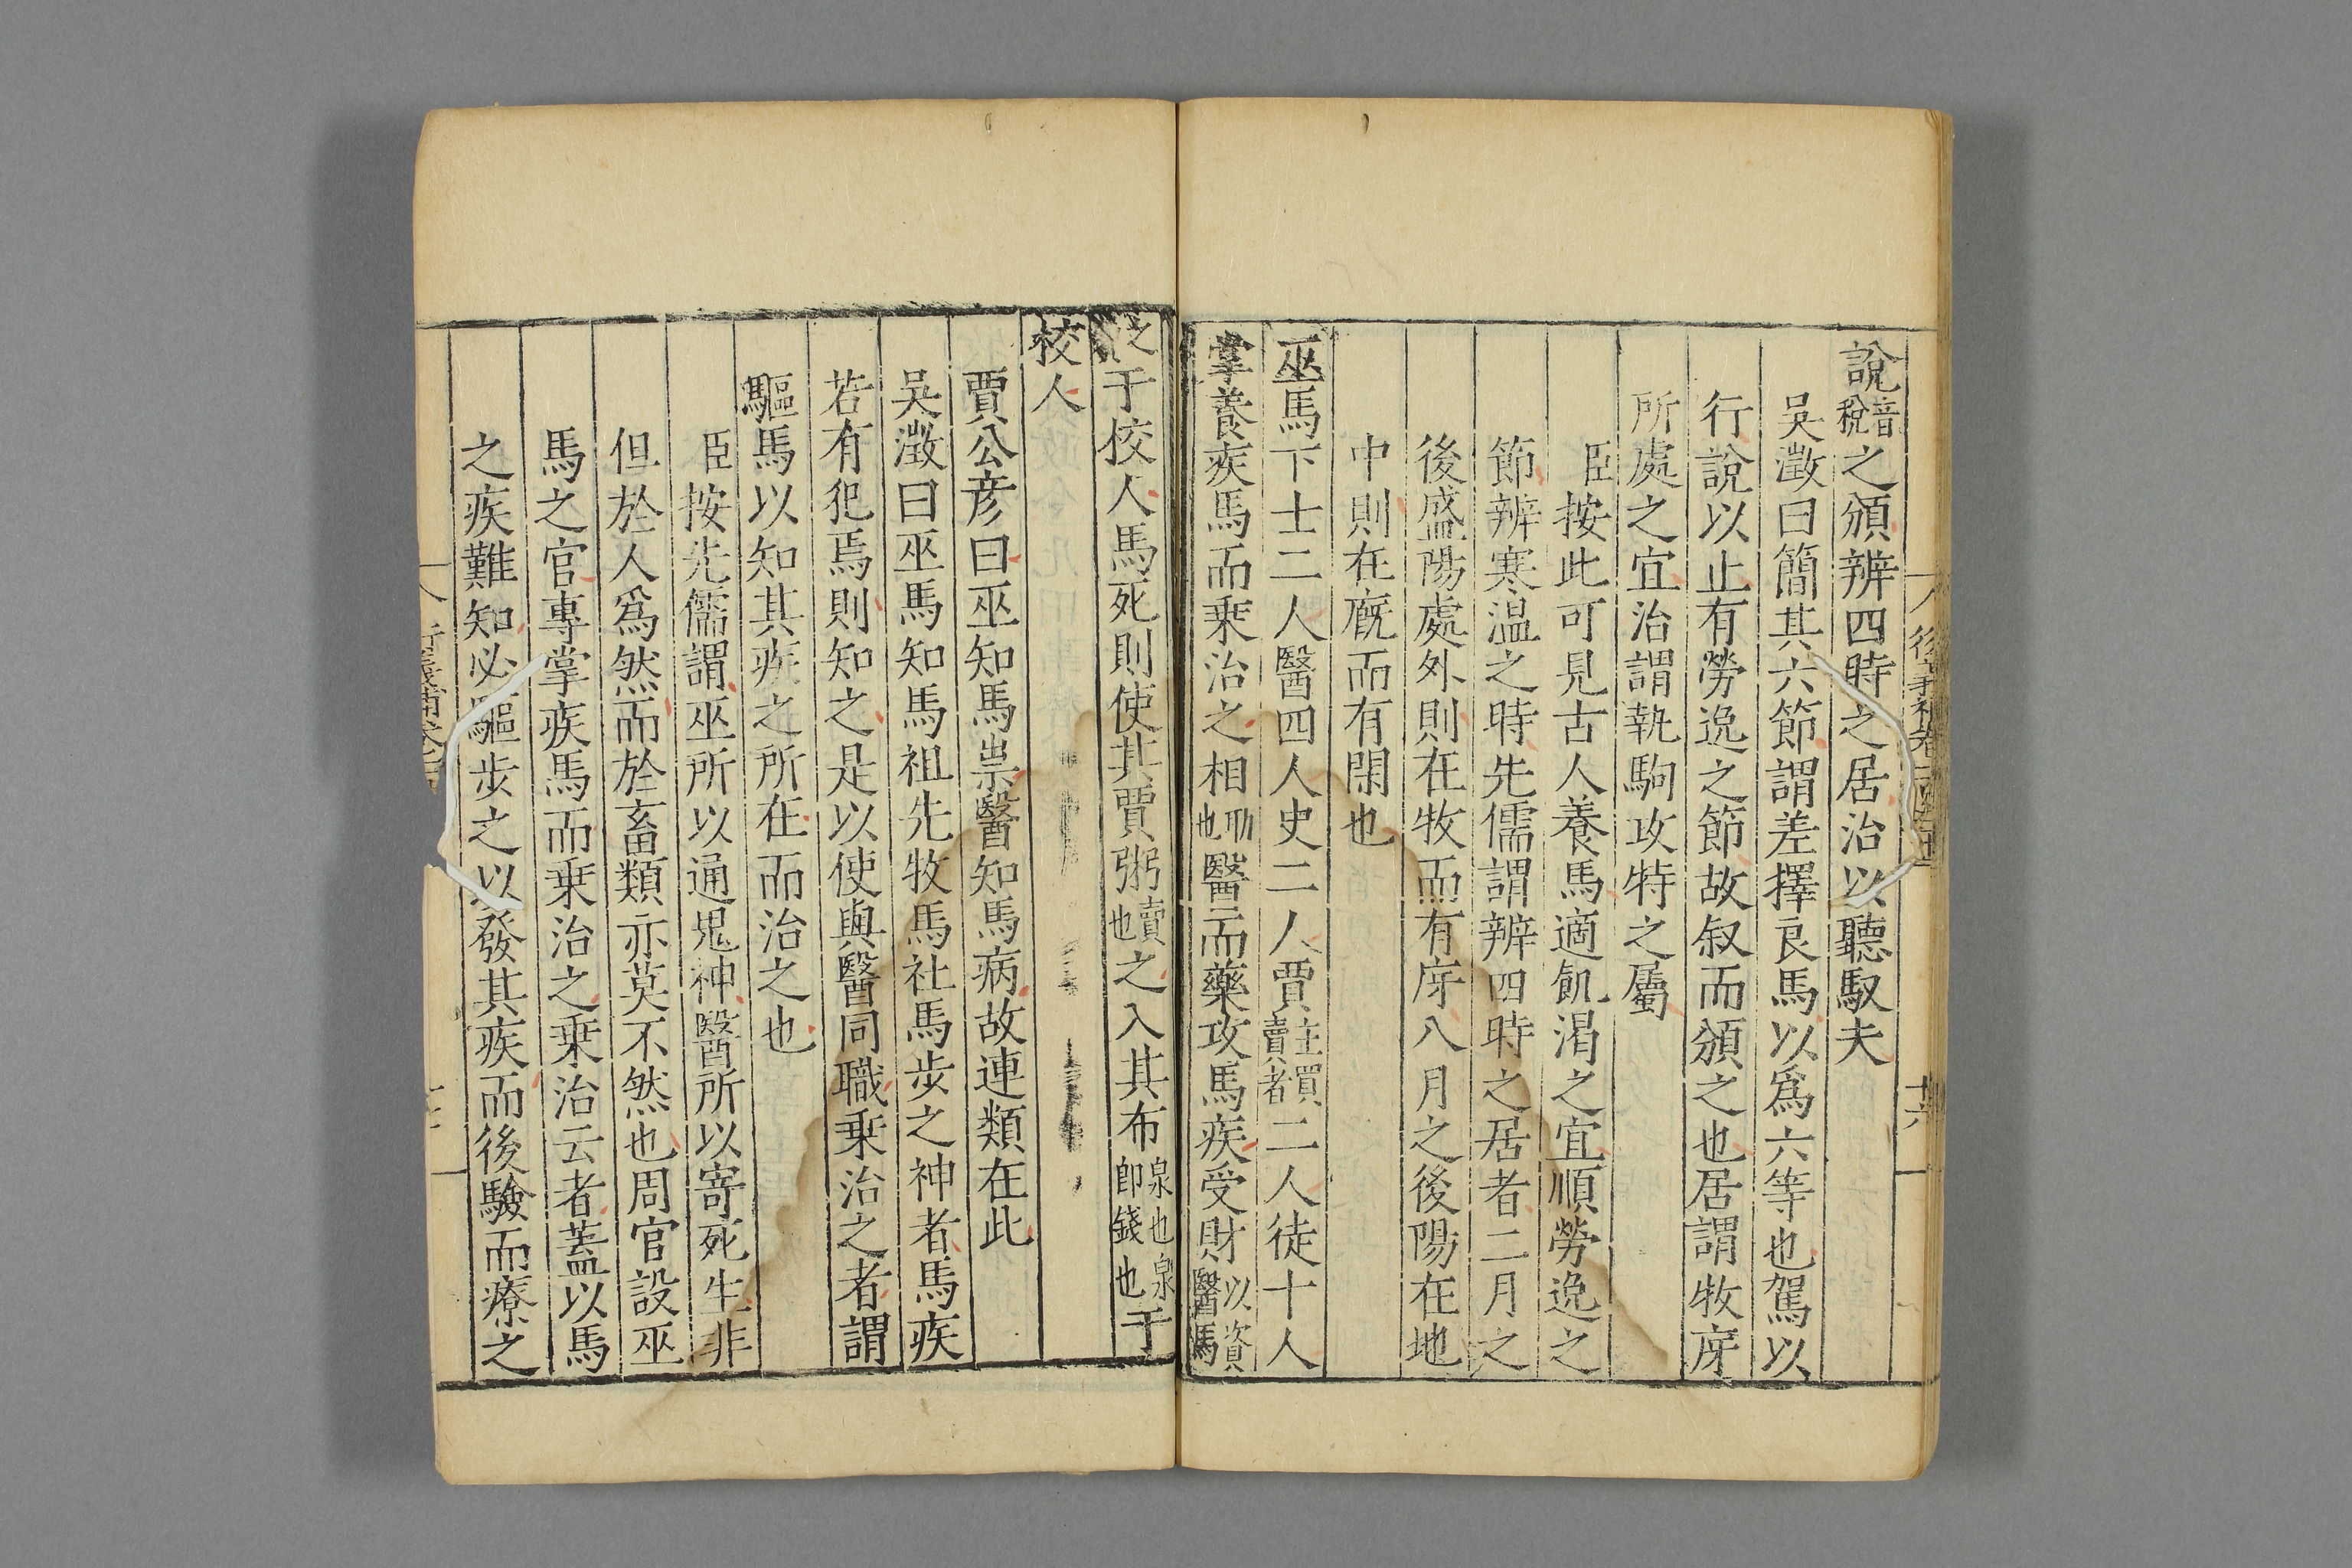 說音稅之頒辨四時之居治以聽馭夫
吳澂曰簡其六節謂差擇良馬以爲六等也駕以
行說以止有勞逸之節故叙而頒之也居謂牧庌
所處之宜治謂執駒攻特之屬
臣按此可見古人養馬適飢渴之宜順勞逸之
節辨寒温之時先儒謂辨四時之居者二月之
後盛陽處外則在牧而有庌八月之後陽在地
中則在廐而有閑也
巫馬下士二人醫四人史二人賈主買賣者二人徒十人
掌養疾馬而乗治之相助也醫而藥攻馬疾受財以資醫馬
于校人馬死則使其賈粥賣也之入其布泉也泉卽錢也于
校人
賈公彦曰巫知馬祟醫知馬病故連類在此
吳澂曰巫馬知馬祖先牧馬社馬步之神者馬疾
若有犯焉則知之是以使與醫同職乗治之者謂
驅馬以知其疾之所在而治之也
臣按先儒謂巫所以通鬼神醫所以寄死生非
但於人爲然而於畜類亦莫不然也周官設巫
馬之官專掌疾馬而乗治之乗治云者蓋以馬
之疾難知必驅步之以發其疾而後驗而療之